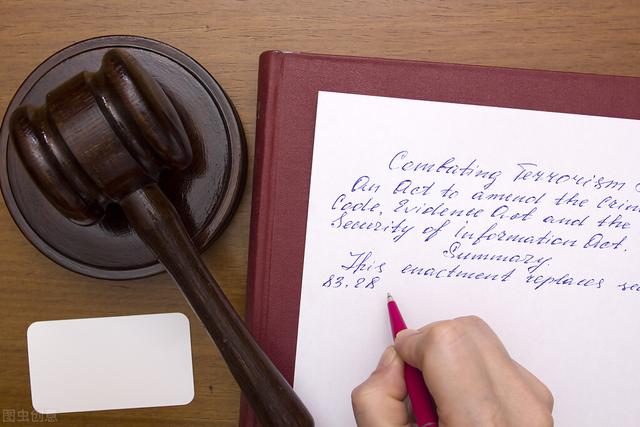 Combating Terrorism
An Act to amend the Crim
Code, Evidence Act and the
Security of Information Act.
Summary.
This enactment replaces se
83.28
图虫创意